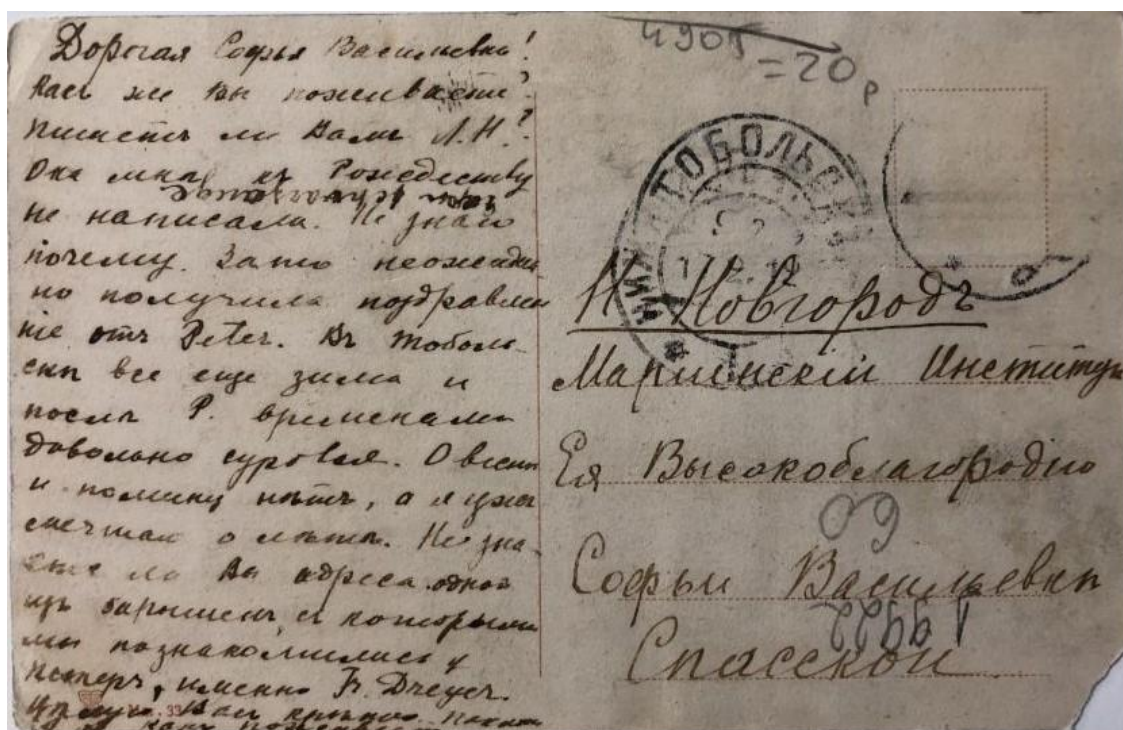 Дорогая Софья Васильевна!
Какъ же Вы поживаете?
Пишетъ ли Вамъ Л.Н.?
Она мнѣ къ Рождеству
не написала. Не знаю
почему. Зато неожидан
но получила поздравле
ніе отъ Peter. Въ Тоболь-
скѣ все еще зима и
послѣ Р. временами
довольно суровая. О веснѣ
и помину нѣтъ, а я уже
мечтаю о лѣтѣ. Не зна-
ете ли Вы адреса одной
изъ барышень, с которыми
мы познакомились у
Петеръ, именно Fr. Dreyer.
Цѣлую Васъ крѣпко
4905
=20 р
ТОБОЛЬСКЪ
Н Новгородъ
Маріинскій Институтъ
Ея Высокоблагородію
60
Софьи Васильевнѣ
Спасской